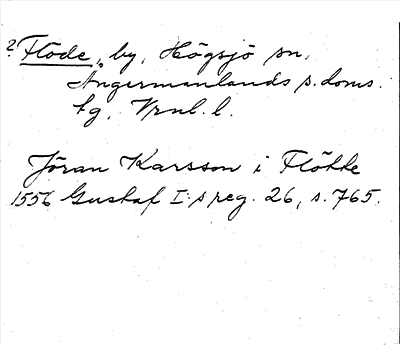 ? Flöde, by, Högsjö sn,
Ångermanlands s. doms.
tg, Vrnl. l.
Jöran Karsson i Flökke
1556 Gustaf I:s reg. 26, s. 765.